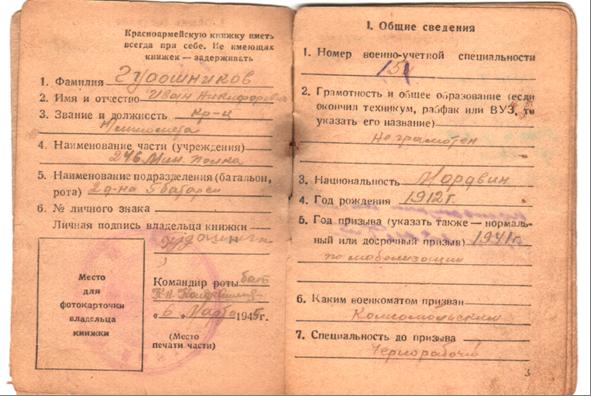 Красноармейскую книжку иметь
всегда при себе. Не имеющих
книжек — задерживать
1. Фамилия Гудошников
2. Имя и отчество Иван Никифорович
3. Звание и должность кр-ц
4. Наименование части (учреждения)
246 Мин. полка
5. Наименование подразделения (батальон,
рота) 2 д-на 5 батареи
6. № личного знака
Личная подпись владельца книжки
Место
для
фотокарточки
владельца
книжки
Командир роты бат
"6" Марта 1945г.
(Место
печати части)
I. Общие сведения
1. Номер военно-учетной специальности
2. Грамотность и общее образование (если
окончил техникум, рабфак или ВУЗ, то
указать его название)
Не грамотен
3. Национальность Мордвин
4. Год рождения 1912г
5. Год призыва (указать также — нормаль-
ный или досрочный призыв) 1941г.
по мобилизации
6. Каким военкоматом призван
Комсомольским
7. Специальность до призыва
Чернорабочий